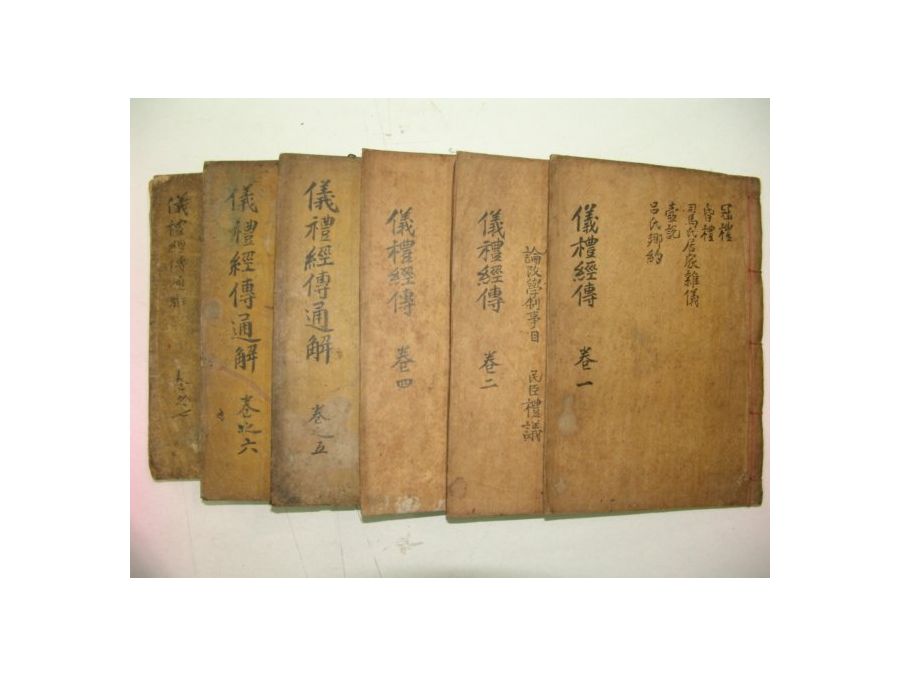 冠禮
昏禮
司馬氏居家雜儀
壼說
呂氏鄕約
儀禮經傳 卷一
論改學制事目 民臣禮議
儀禮經傳 卷二
儀禮經傳 卷四
儀禮經傳通解 卷之五
儀禮經傳通解 卷之六
儀禮經傳通解 卷之七